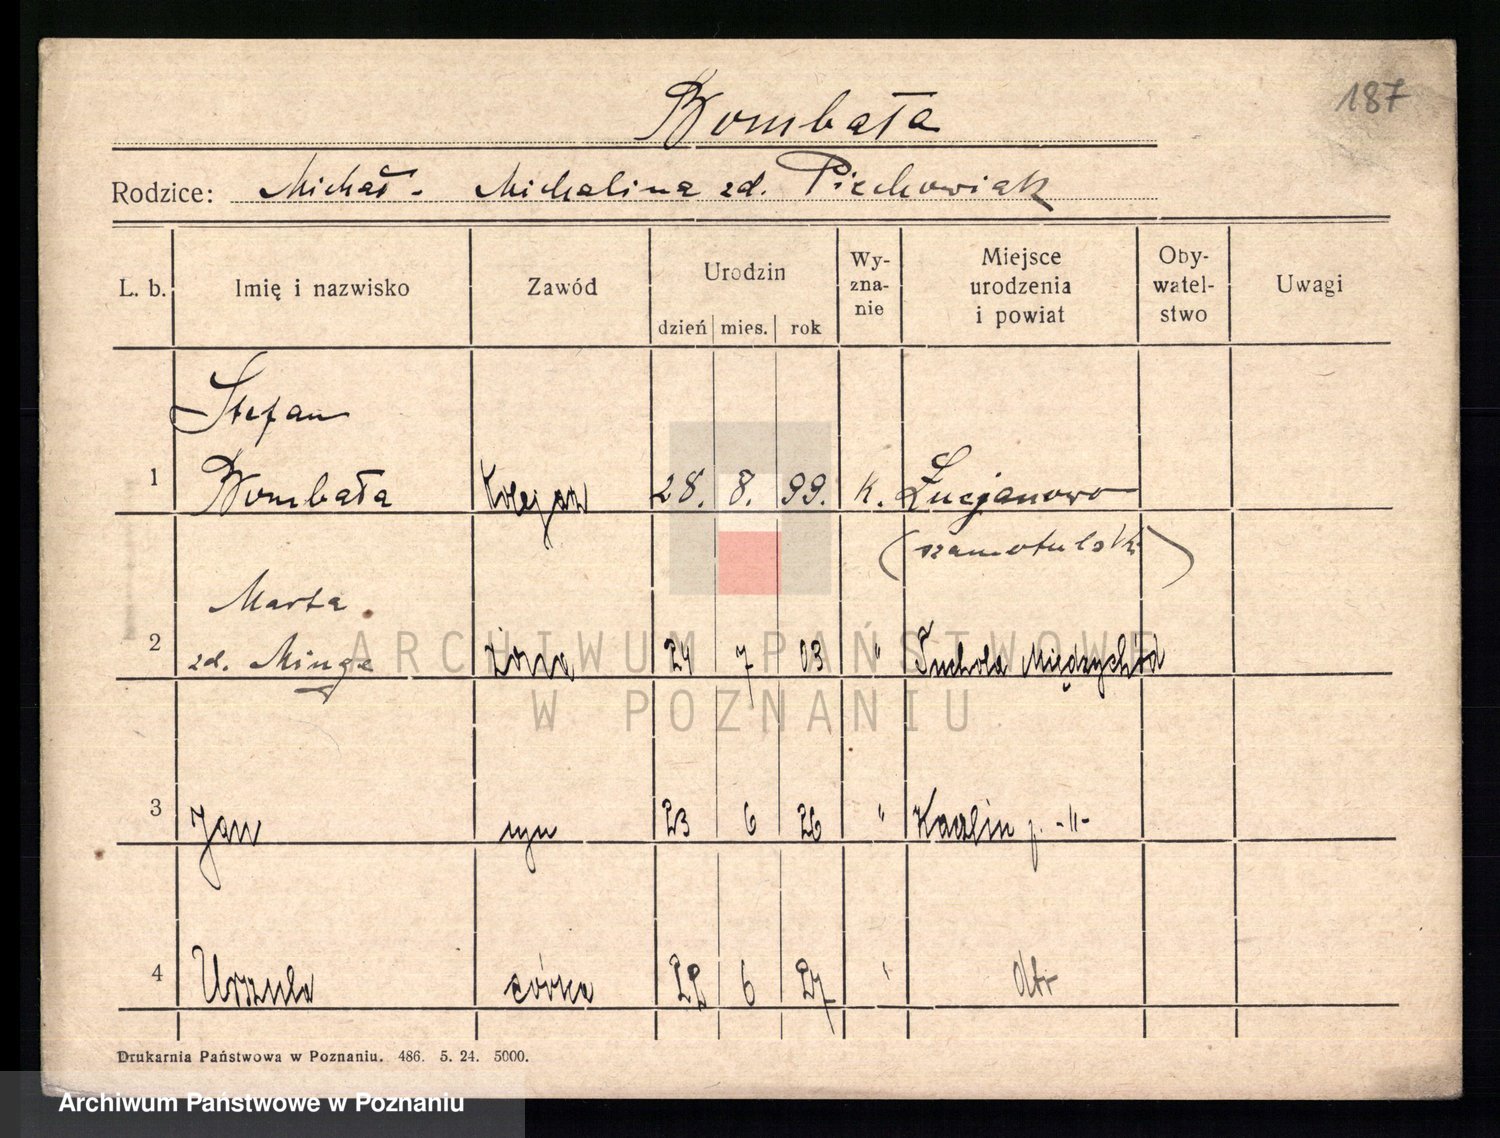 187
Bombała
Rodzice: Michał - Michalina zd. Piechowiak
L. b. Imię i nazwisko Zawód Urodzin dzień mies. rok Wy-zna-nie Miejsce urodzenia i powiat Oby-watel-stwo Uwagi
Stefan
1 Bombała Kolejarz 28. 8. 99. k. Lucjanowo
(szamotulski)
Marta
2 zd. Minge żona 24 7 03 " Tuchola Międzychód
3 Jan syn 23 6 26 " p. -"-
4 Urszula córka 22 6 27 "
Drukarnia Państwowa w Poznaniu. 486. 5. 24. 5000.
ARCHIWUM PAŃSTWOWE
W POZNANIU
Archiwum Państwowe w Poznaniu